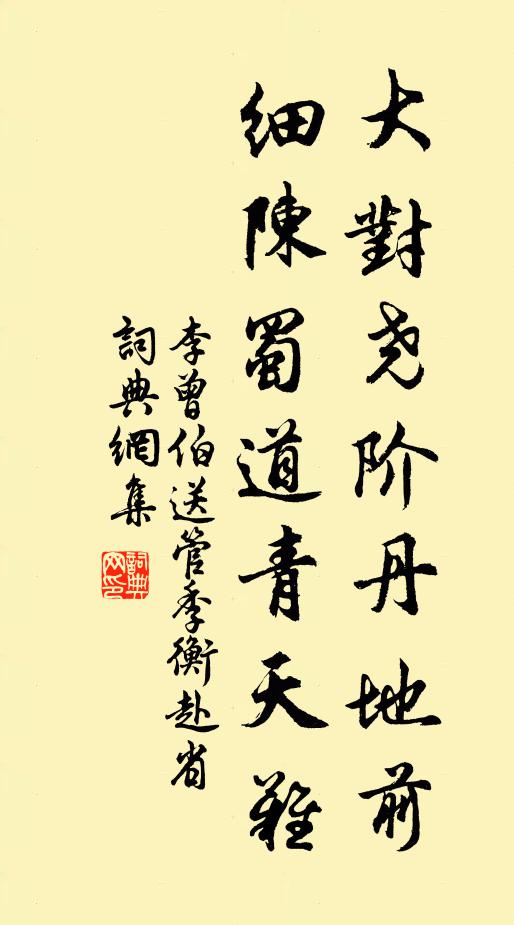 大對尧阶丹地前
細陳蜀道青天難
李曾伯送管季衡赴省
詞典網集
詞典网印